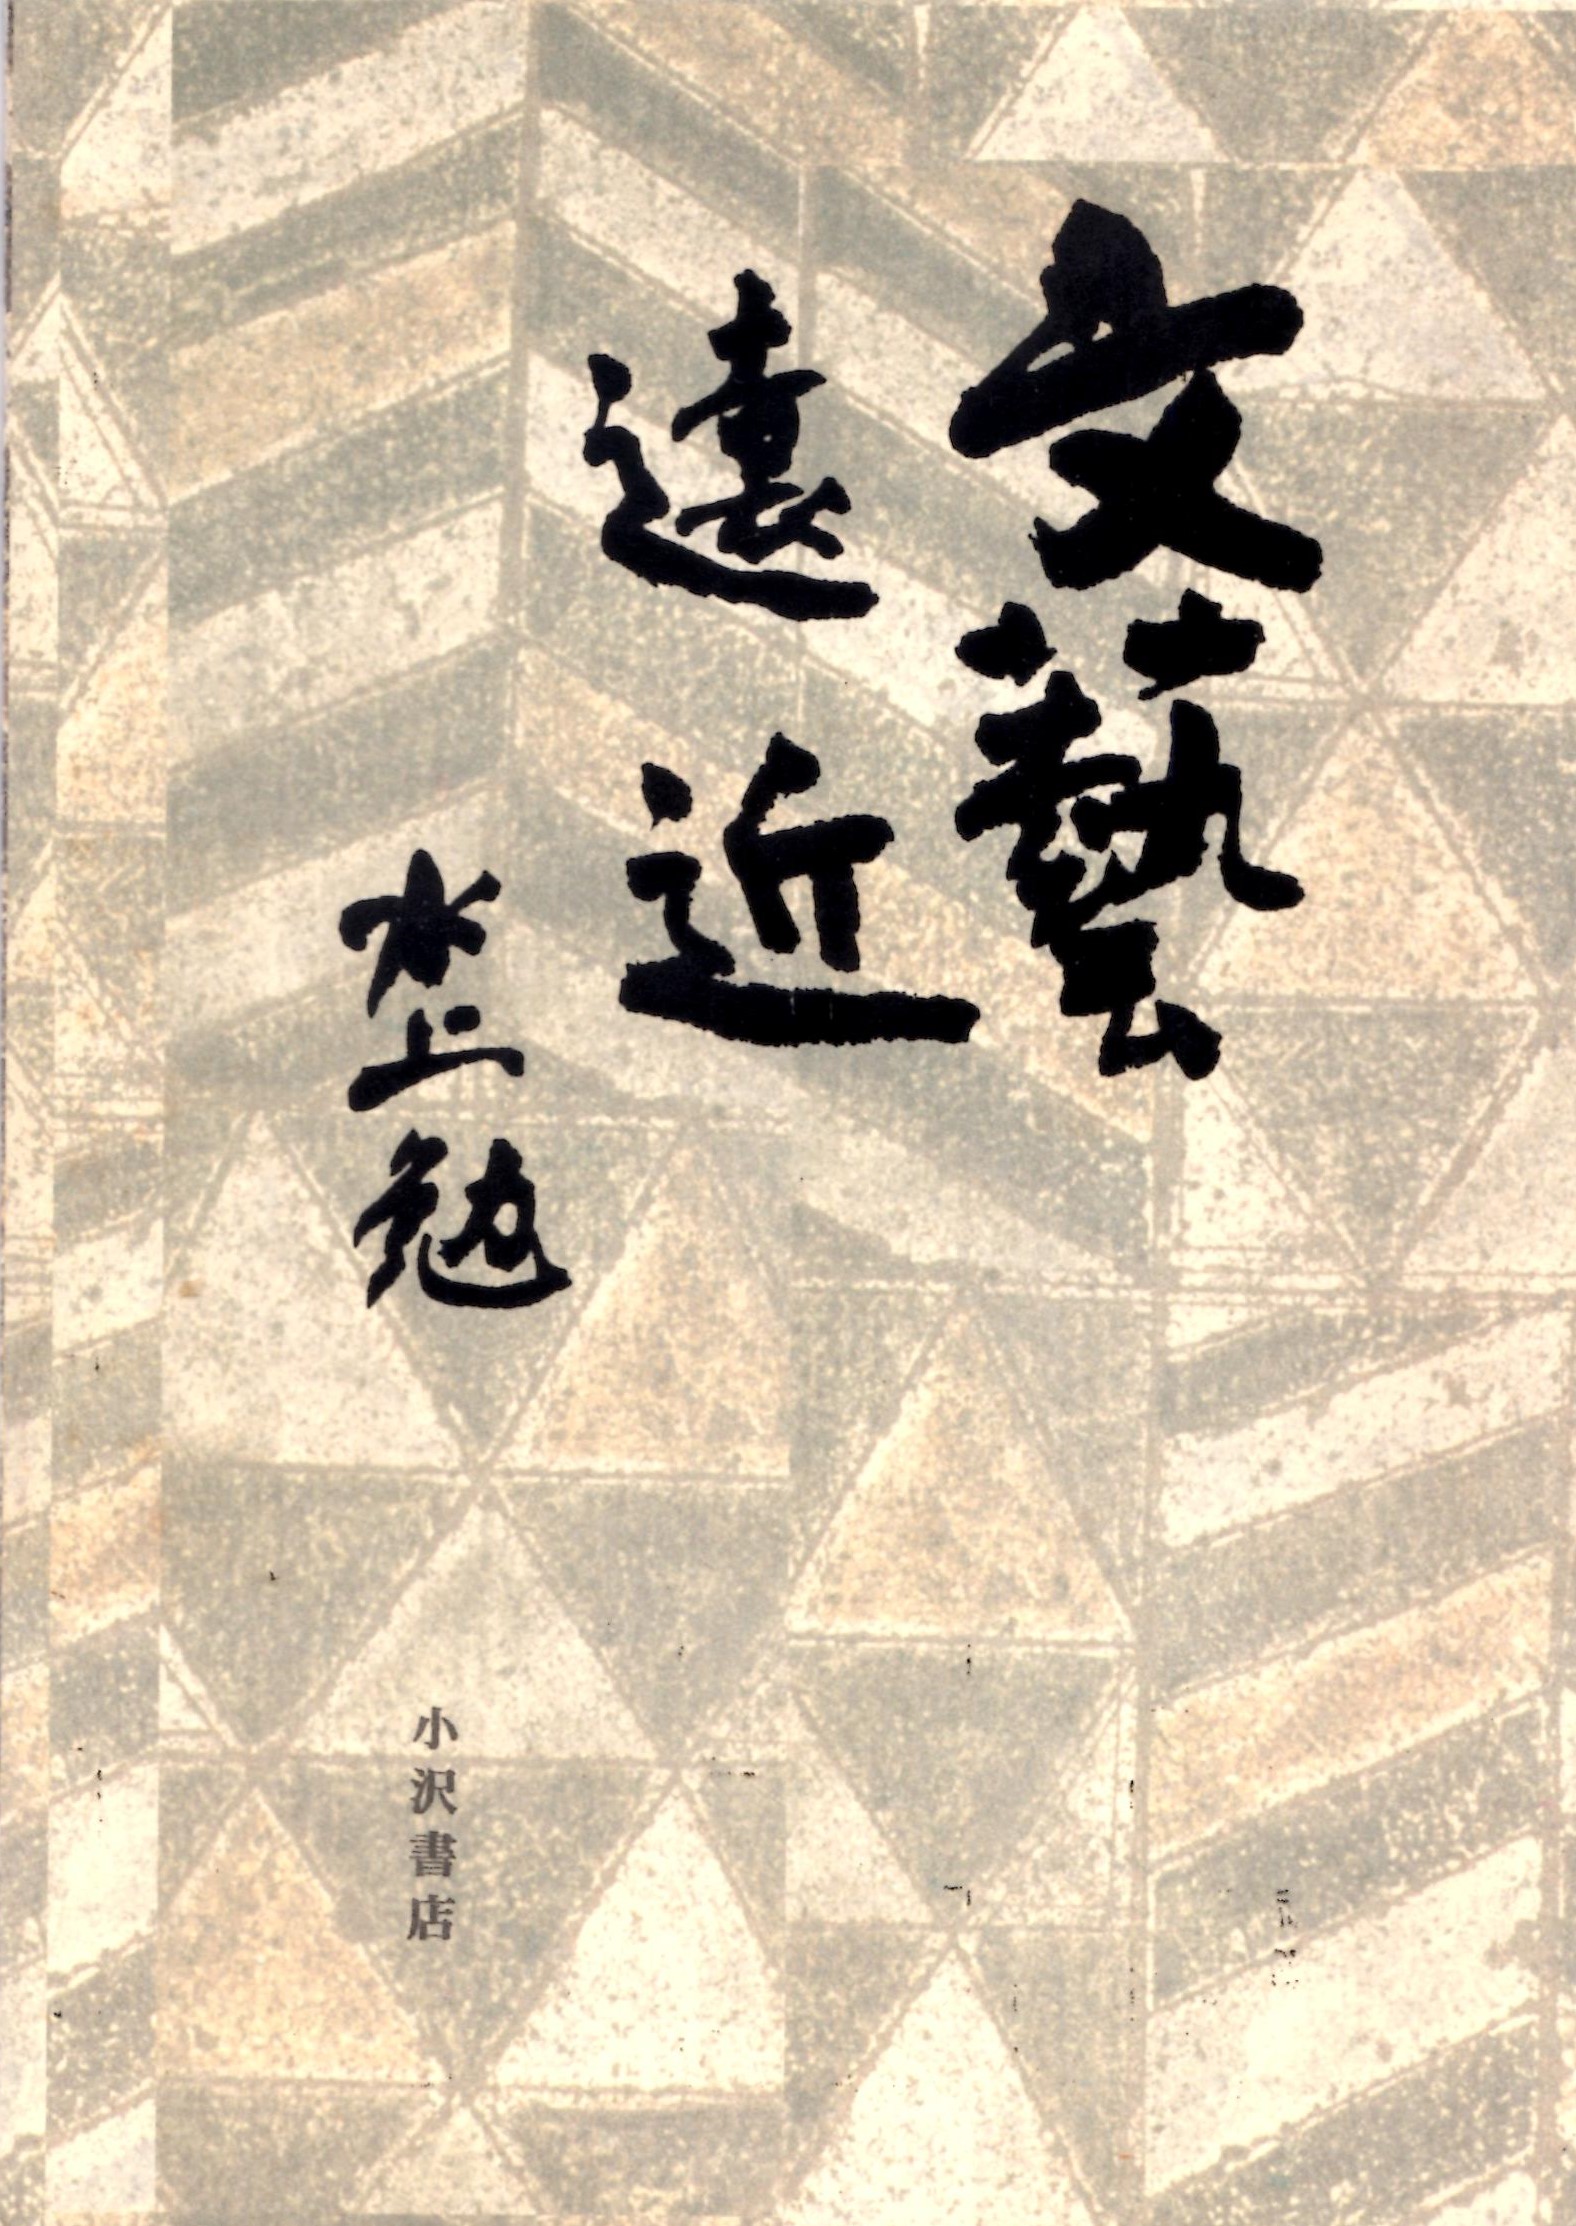 文藝
遠近
水上勉
小沢書店